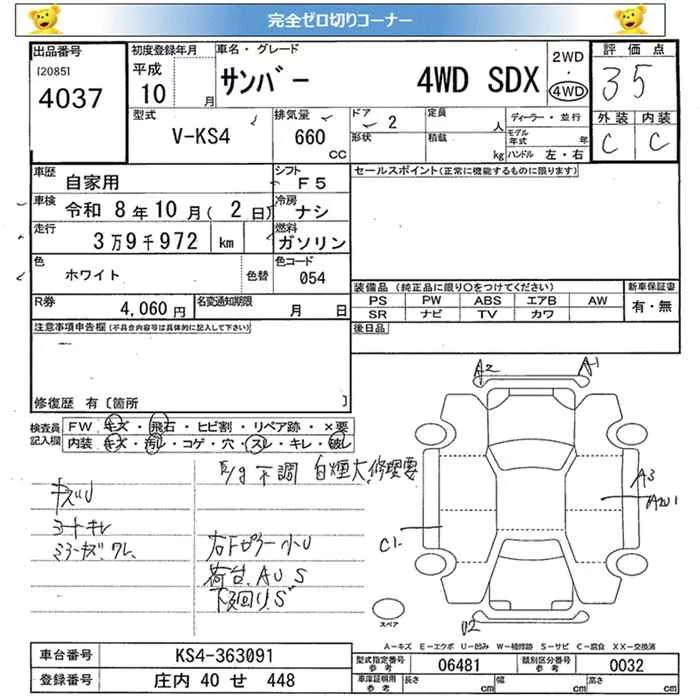 完全ゼロ切りコーナー
出品番号
[2085]
4037
初度登録年月
平成
10 月
車名・グレード
サンバー 4WD SDX
2WD
・
4WD
評価点
35
外装 内装
C C
型式
V-KS4
排気量
660
CC
ドア 2
形状
定員
人
積載
kg
ディーラー・並行
モデル年式 年
ハンドル 左・右
車歴
自家用
シフト
F5
車検 令和 8年10月( 2日)
冷房
ナシ
走行
3万9千972 km
燃料
ガソリン
色
ホワイト
色替
色コード
054
R券
4,060円
名変通知期限
月 日
セールスポイント(正常に機能するものに限ります)
装備品(純正品に限り○をつけてください)
PS PW ABS エアB AW
SR ナビ TV カワ
新車保証書
有・無
後日品
注意事項申告欄(不具合内容等は具体的に記入して下さい)
修復歴 有〔箇所 〕
検査員記入欄
FW キズ・飛石・ヒビ割・リペア跡・×要
内装 キズ・汚レ・コゲ・穴・スレ・キレ・破レ
E/g 不調 白煙大 修理要
キズU
シートキレ
ミラーキズ、ワレ
右Fピラー小U
荷台、AUS
下廻り、S
A2
A1
A3
C1
U2
スペア
A-キズ E-エクボ U-凹み W-補修跡 S-サビ C-腐食 XX-交換済
車台番号
KS4-363091
登録番号
庄内 40 せ 448
型式指定番号
参考
06481
類別区分番号
参考
0032
車庫証明用
参考
長さ cm
幅 cm
高さ cm